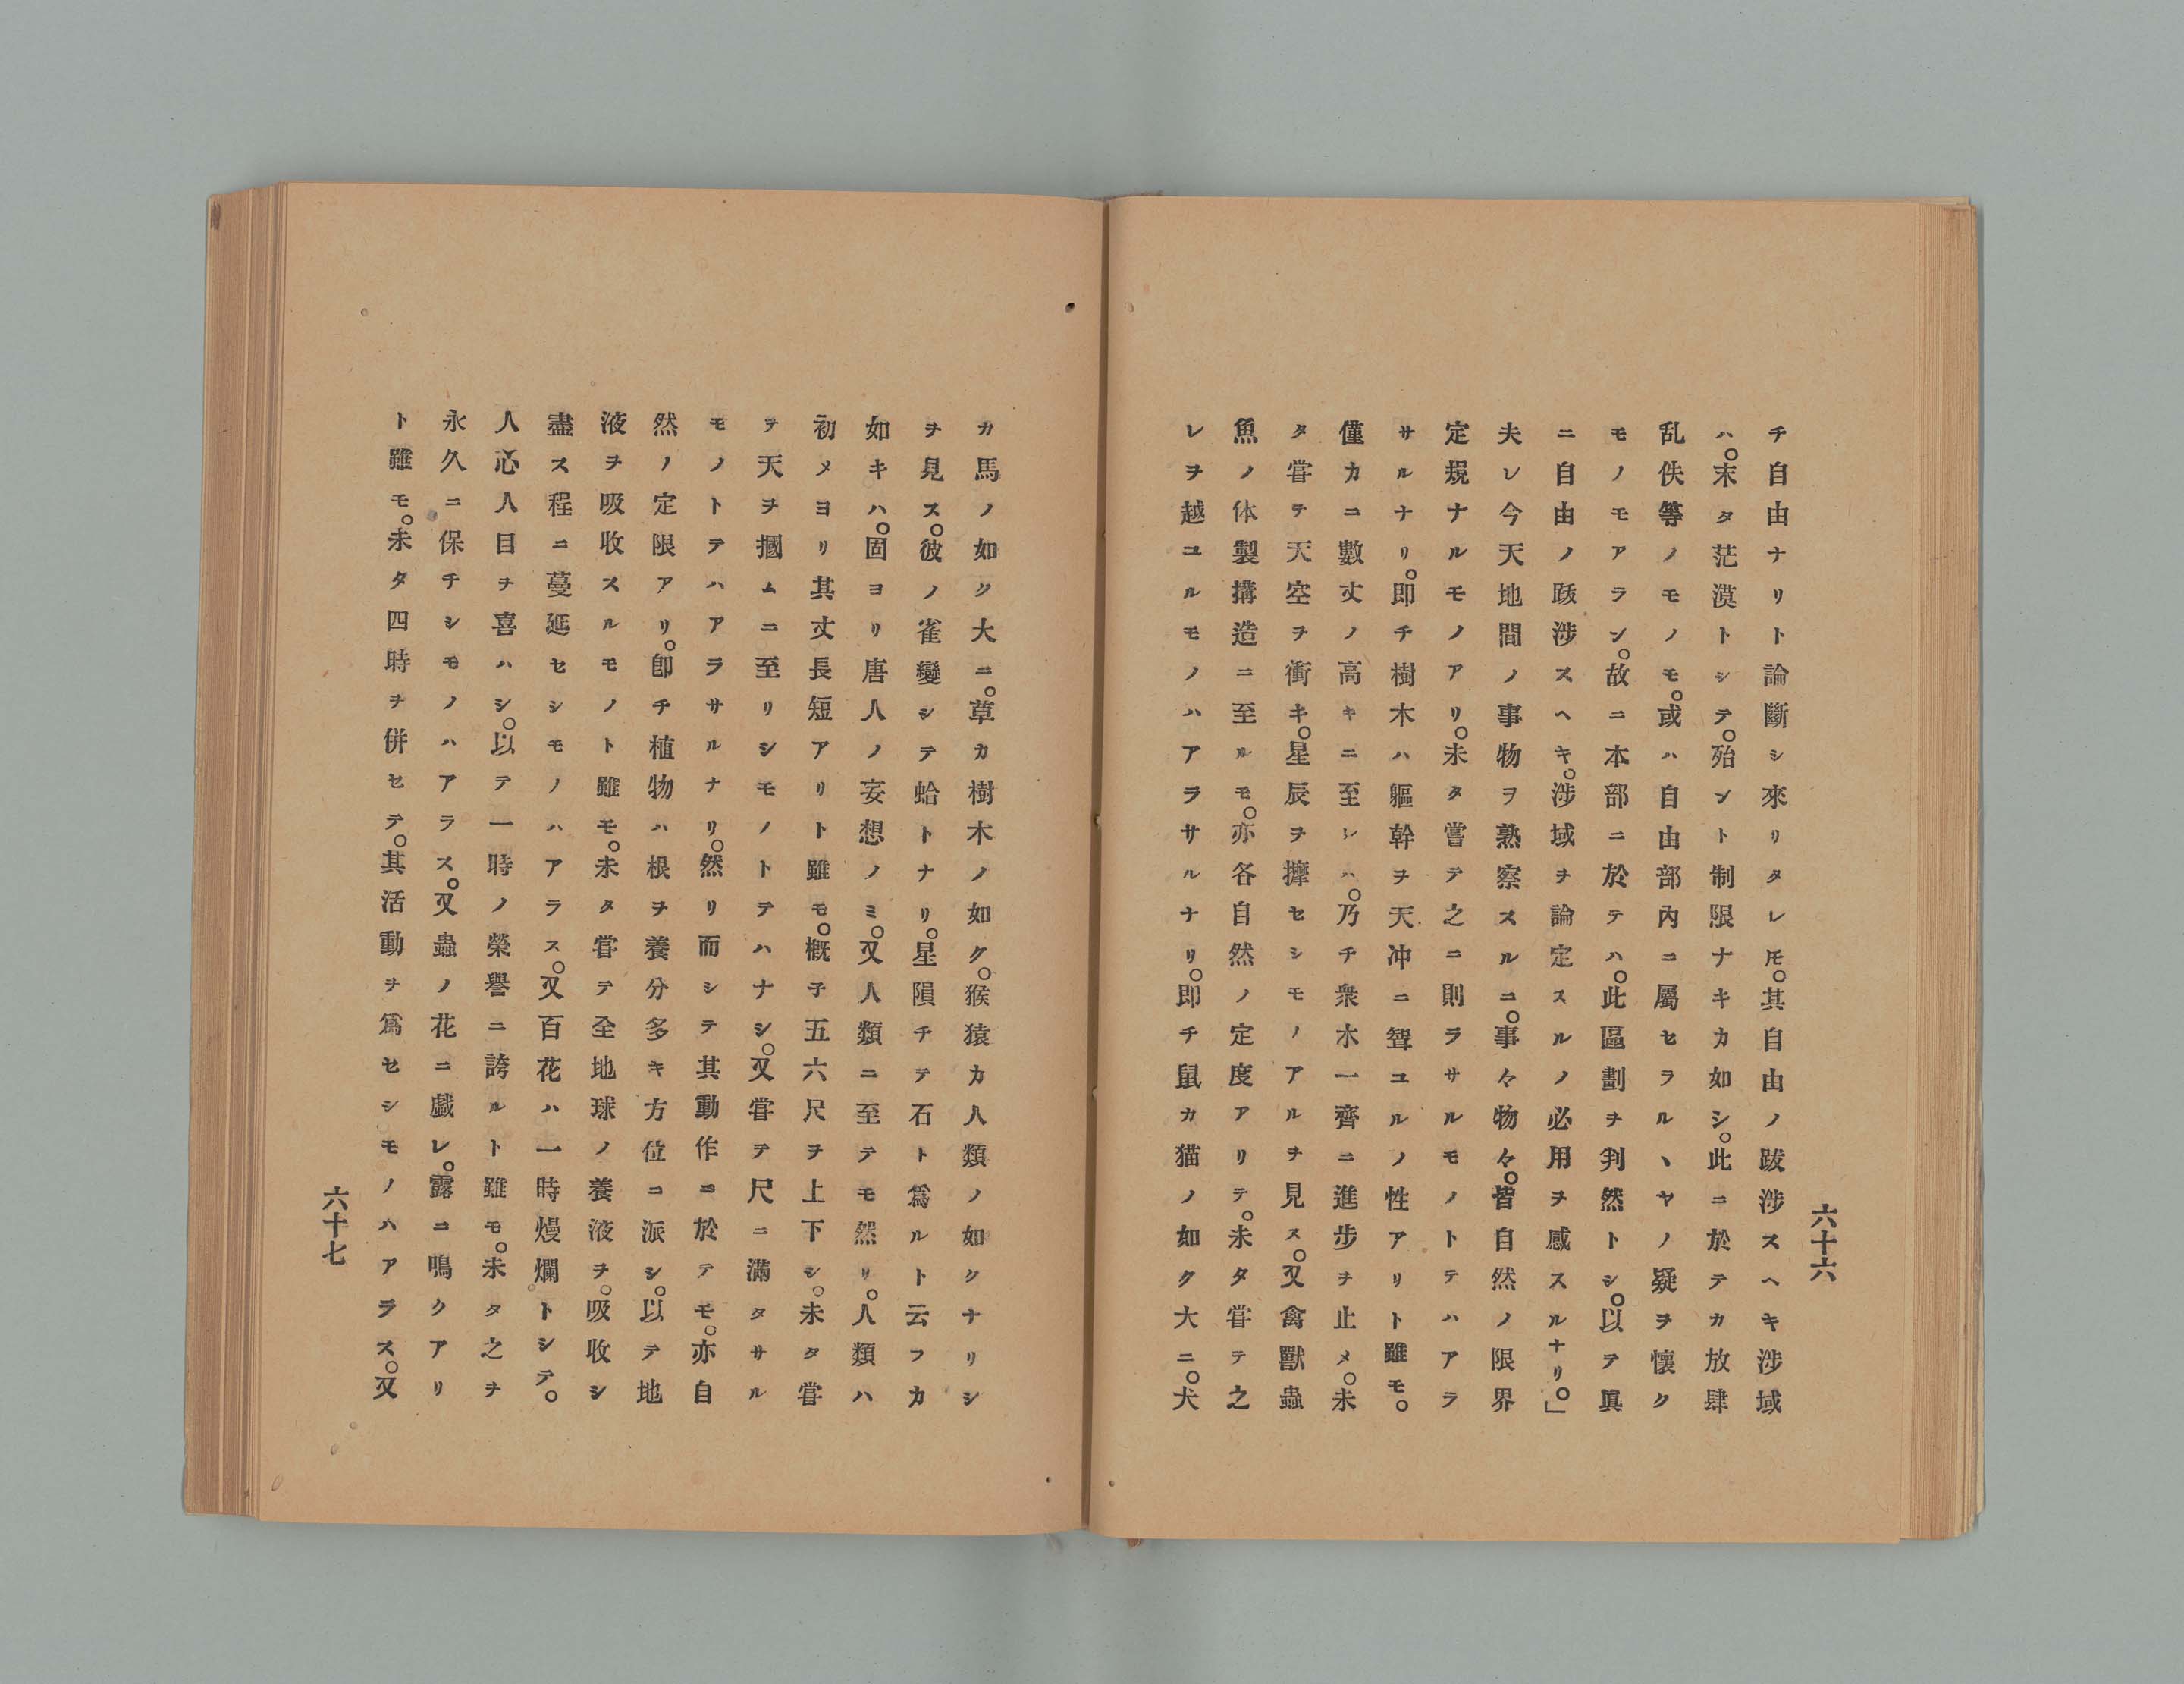 六十六
チ自由ナリト論斷シ來リタレ𪜈。其自由ノ跋渉スヘキ渉域
ハ。末タ茫漠トシテ。殆ント制限ナキカ如シ。此ニ於テカ放肆
乱佚等ノモノモ。或ハ自由部內ニ屬セラルヽヤノ疑ヲ懷ク
モノモアラン。故ニ本部ニ於テハ。此區劃ヲ判然トシ。以テ眞
ニ自由ノ跋涉スヘキ。涉域ヲ論定スルノ必用ヲ感スルナリ。」
夫レ今天地間ノ事物ヲ熟察スルニ。事々物々。皆自然ノ限界
定規ナルモノアリ。未タ嘗テ之ニ則ラサルモノトテハアラ
サルナリ。即チ樹木ハ軀幹ヲ天冲ニ聳ユルノ性アリト雖モ。
僅カニ數丈ノ高キニ至レハ。乃チ衆木一齊ニ進步ヲ止メ。未
タ嘗テ天空ヲ衝キ。星辰ヲ摩セシモノアルヲ見ス。又禽獸蟲
魚ノ体製搆造ニ至ルモ。亦各自然ノ定度アリテ。未タ嘗テ之
レヲ越ユルモノハアラサルナリ。即チ鼠カ猫ノ如ク大ニ。犬
カ馬ノ如ク大ニ。草カ樹木ノ如ク。猴猿カ人類ノ如クナリシ
ヲ見ス。彼ノ雀變シテ蛤トナリ。星隕チテ石ト爲ルト云フカ
如キハ。固ヨリ唐人ノ妄想ノミ。又人類ニ至テモ然リ。人類ハ
初メヨリ其丈長短アリト雖モ。概子五六尺ヲ上下シ。未タ甞
テ天ヲ摑ムニ至リシモノトテハナシ。又甞テ尺ニ滿タサル
モノトテハアラサルナリ。然リ而シテ其動作ニ於テモ。亦自
然ノ定限アリ。卽チ植物ハ根ヲ養分多キ方位ニ派シ。以テ地
液ヲ吸收スルモノト雖モ。未タ甞テ全地球ノ養液ヲ。吸收シ
盡ス程ニ蔓延セシモノハアラス。又百花ハ一時熳爛トシテ。
人心人目ヲ喜ハシ。以テ一時ノ榮譽ニ誇ルト雖モ。未タ之ヲ
永久ニ保チシモノハアラス。又蟲ノ花ニ戯レ。露ニ鳴クアリ
ト雖モ。未タ四時ヲ併セテ。其活動ヲ爲セシモノハアラス。又
六十七